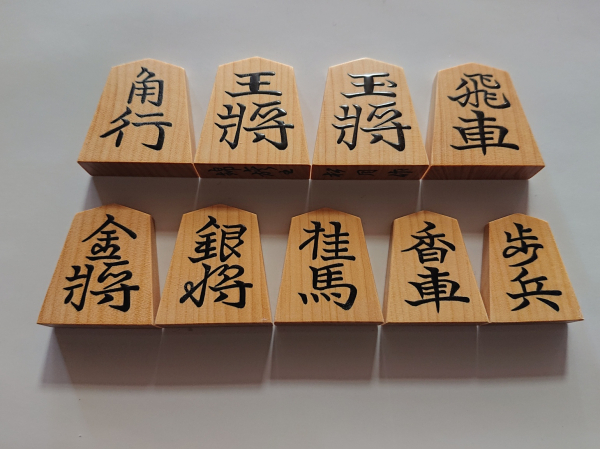 角行
王将
玉将
飛車
金将
銀将
桂馬
香車
歩兵